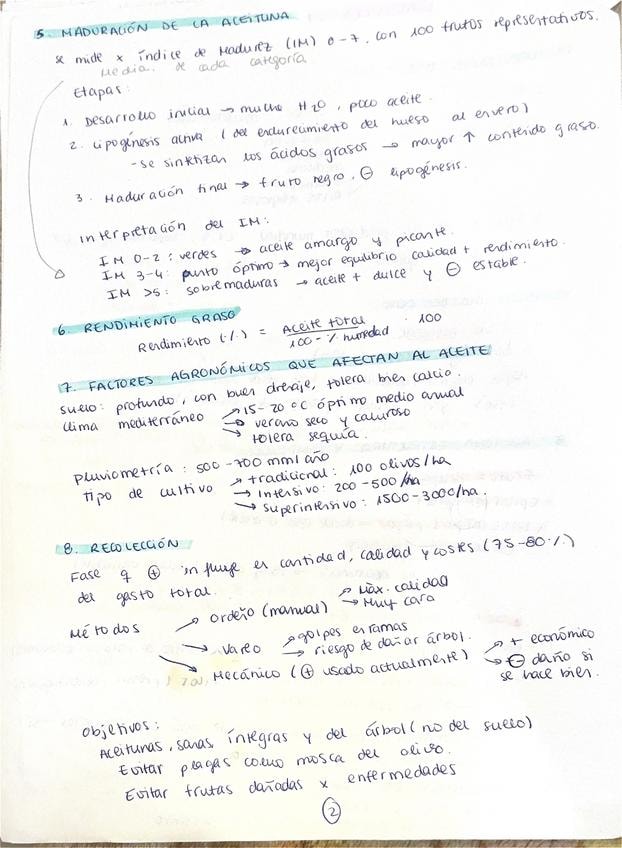 5. MADURACIÓN DE LA ACEITUNA
Se mide x índice de Madurez (IM) 0-7. con 100 frutos representativos.
Media. de cada categoría
Etapas:
1. Desarrollo inicial → mucho H2O, poco aceite.
2. Lipogénesis activa (del endurecimiento del hueso al envero)
- Se sintetizan los ácidos grasos → mayor ↑ contenido graso.
3. Maduración final → fruto negro, ⊖ lipogénesis.
Interpretación del IM:
IM 0-2: verdes → aceite amargo y picante.
IM 3-4: punto óptimo → mejor equilibrio calidad + rendimiento.
IM >5: sobremaduras → aceite + dulce y ⊖ estable.
6. RENDIMIENTO GRASO
Rendimiento (%) = Aceite total / 100 - % humedad · 100
7. FACTORES AGRONÓMICOS QUE AFECTAN AL ACEITE
Suelo: profundo, con buen drenaje, tolera bien calcio.
Clima mediterráneo → 15-20 °C óptimo medio anual
→ verano seco y caluroso
→ tolera sequía.
Pluviometría: 500-700 mm/año
Tipo de cultivo → tradicional: 100 olivos/ha
→ Intensivo: 200-500/ha
→ Superintensivo: 1500-3000/ha.
8. RECOLECCIÓN
Fase q ⊕ influye en cantidad, calidad y costes (75-80%)
del gasto total.
Métodos → Ordeño (manual) → Máx. calidad
→ Muy cara
→ Vareo → golpes en ramas
→ riesgo de dañar árbol.
→ Mecánico (⊕ usado actualmente) → + económico
→ ⊖ daño si
se hace bien.
Objetivos:
Aceitunas, sanas, íntegras y del árbol (no del suelo)
Evitar plagas como mosca del olivo.
Evitar frutas dañadas x enfermedades
2